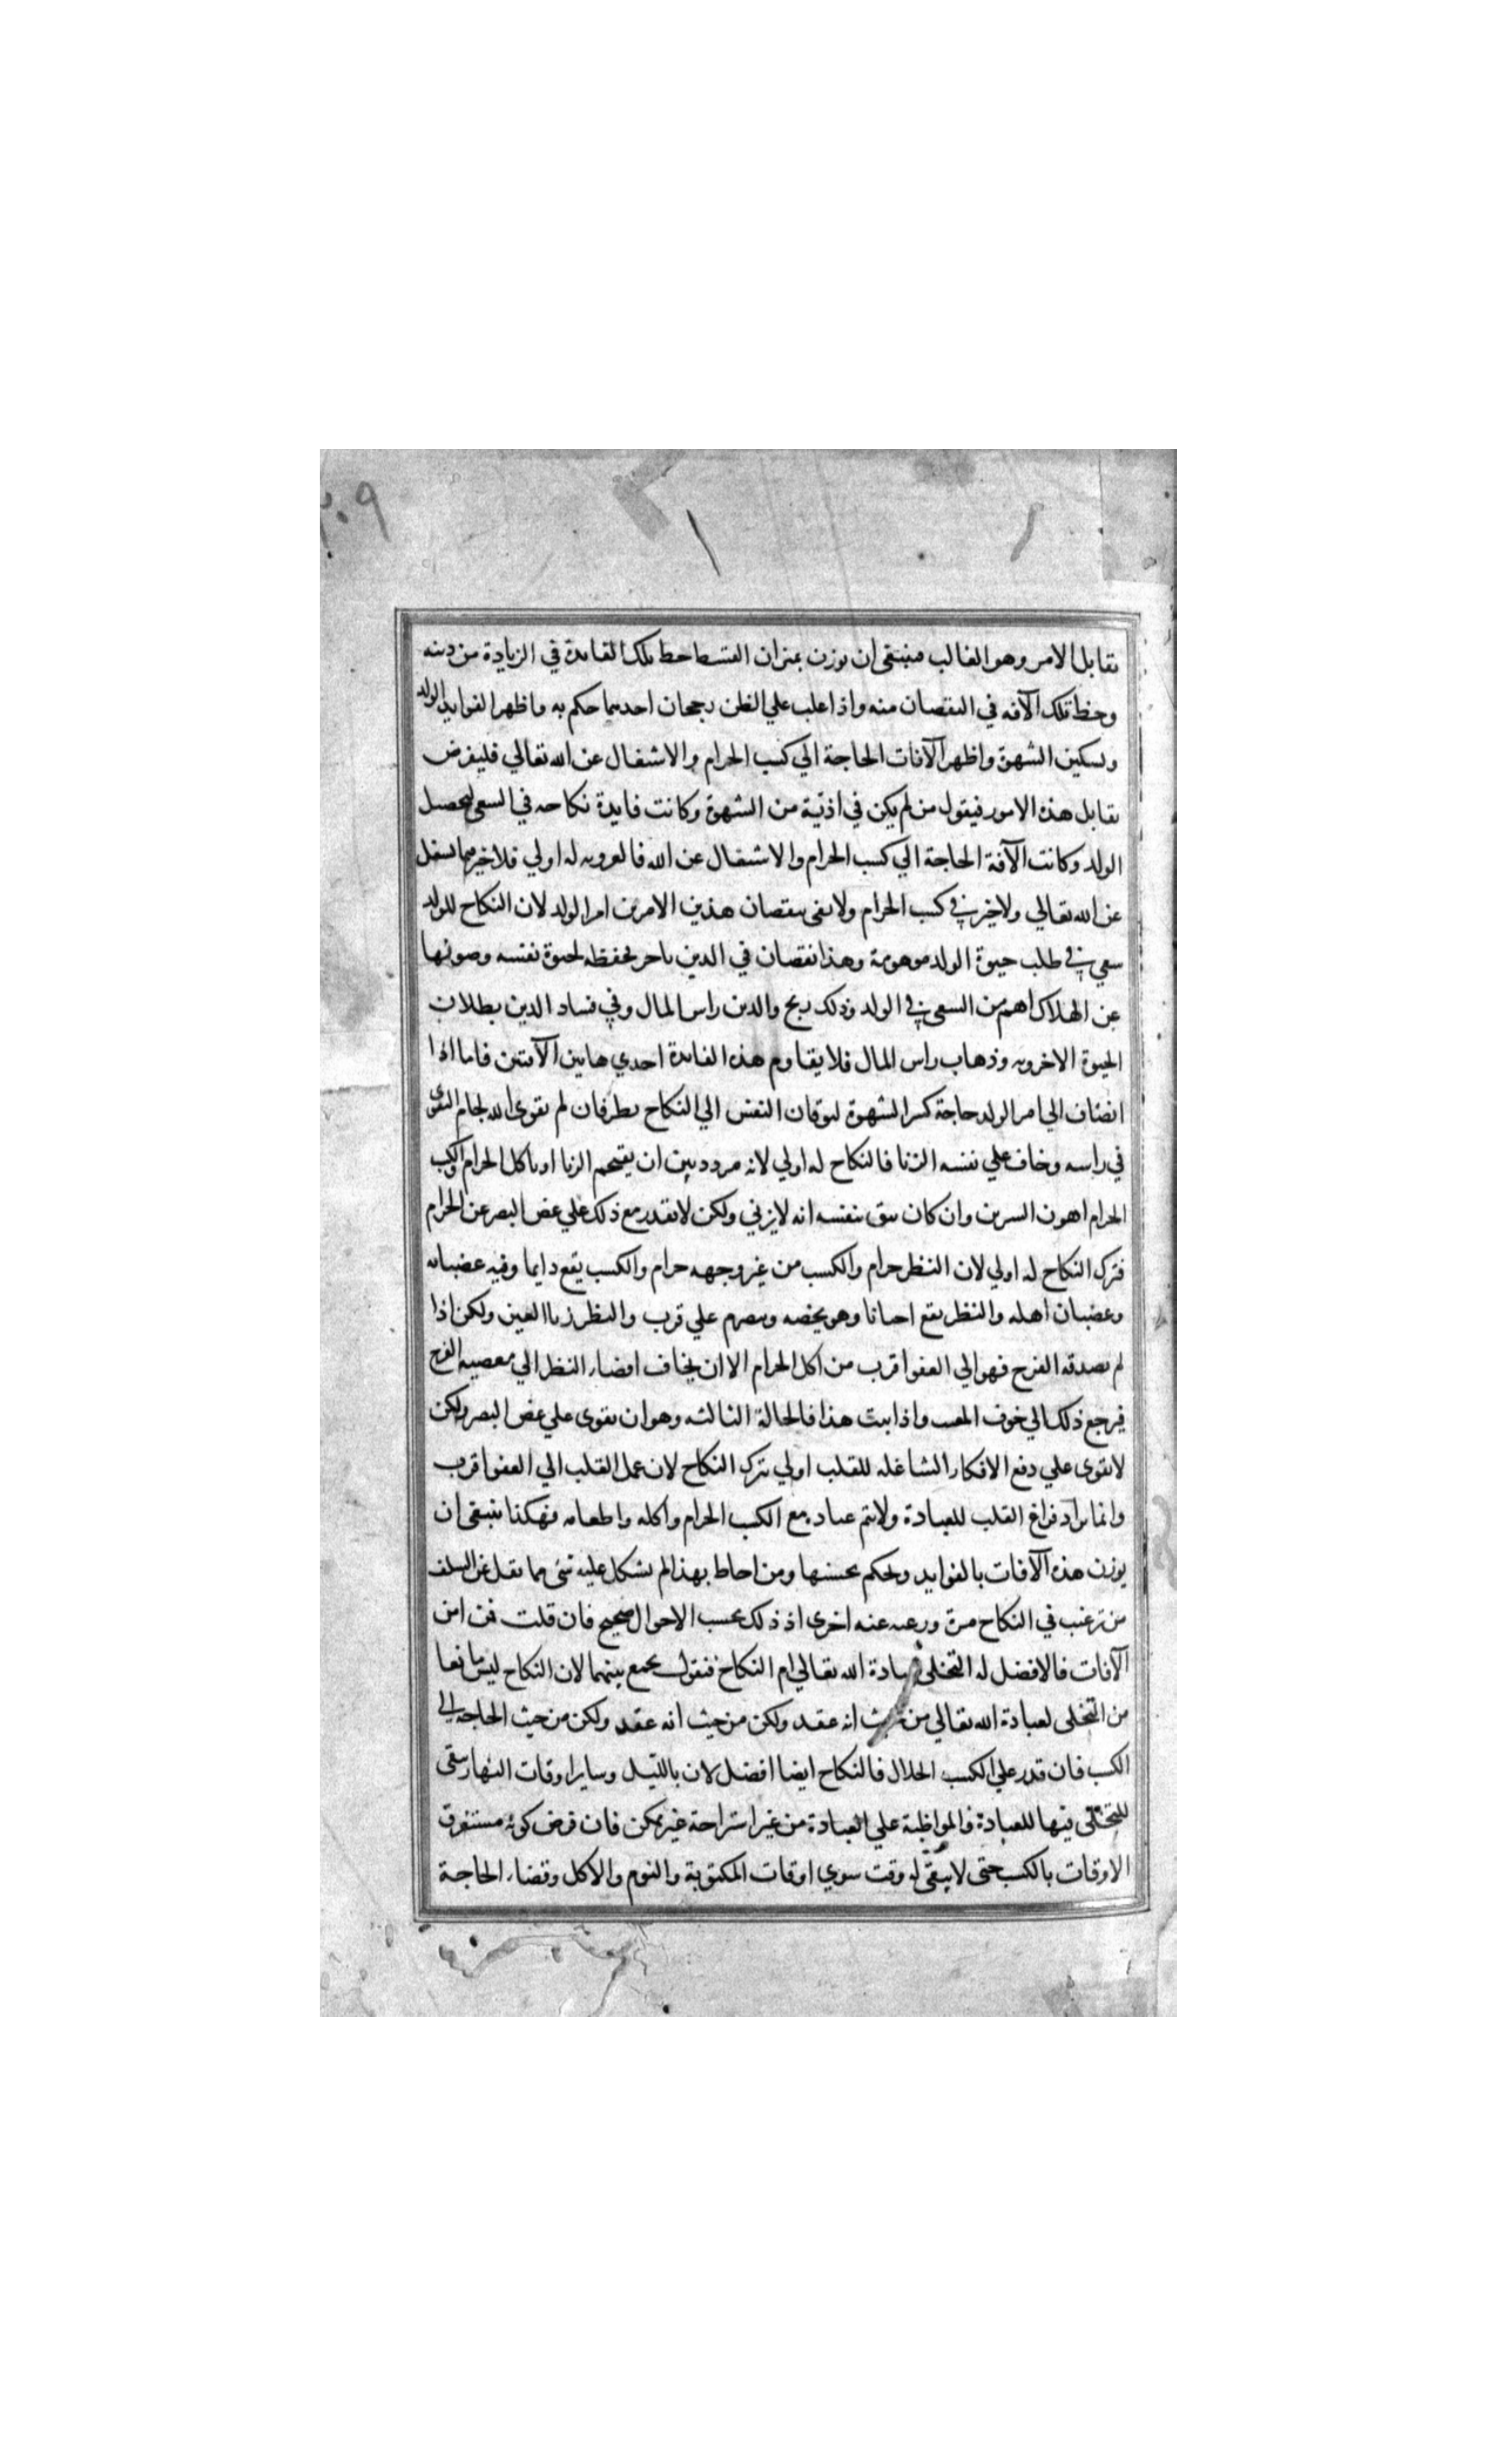 ٢٠٩
تقابل الامر وهو الغالب فينبغى ان يوزن بميزان القسط حظ تلك الفايدة في الزيادة من دينه
وحظ تلك الآفه في النقصان منه واذا غلب علي الظن رجحان احديهما حكم به واظهر الفوايد الولد
وتسكين الشهوة واظهر الآفات الحاجة الي كسب الحرام والاشتغال عن الله تعالي فليفرض
تقابل هذه الامور فيقول من لم يكن في اذيّة من الشهوة وكانت فايدة نكاحه في السعى لتحصيل
الولد وكانت الآفة الحاجة الي كسب الحرام والاشتغال عن الله فالعزوبه له اولي فلا خير فيما يشغل
عن الله تعالي ولا خير في كسب الحرام ولا يفى بنقصان هذين الامرين امر الولد لان النكاح للولد
سعي في طلب حيوة الولد موهومة وهذا نقصان في الدين ناجز فحفظه لحيوة نفسه وصونها
عن الهلاك اهم من السعى في الولد وذلك ربح والدين راس المال وفي فساد الدين بطلان
الحيوة الاخرويه وذهاب راس المال فلا يقاوم هذه الفايدة احدي هاتين الآفتين فاما اذا
انضاف الي امر الولد حاجة كسر الشهوة لتوقان النفس الي النكاح نظر فان لم يقوى الله لجام التقوى
في راسه وخاف علي نفسه الزنا فالنكاح له اولي لانه مردد بين ان يقتحم الزنا او ياكل الحرام والكسب
الحرام اهون الشرين وان كان يثق بنفسه انه لا يزني ولكن لا يقدر مع ذلك علي غض البصر عن الحرام
فترك النكاح له اولي لان النظر حرام والكسب من غير وجهه حرام والكسب يقع دايما وفيه عصيانه
وعصيان اهله والنظر يقع احيانا وهو يخصه وينصرم علي قرب والنظر زنا العين ولكن اذا
لم يصدقه الفرج فهو الي العفو اقرب من اكل الحرام الا ان يخاف افضاء النظر الي معصيه الفرج
فيرجع ذلك الي خوف العنت واذا ثبت هذا فالحالة الثالثه وهو ان يقوى علي غض البصر ولكن
لا يقوى علي دفع الافكار الشاغله للقلب اولي بترك النكاح لان عمل القلب الي العفو اقرب
وانما يراد فراغ القلب للعبادة ولا يتم عباده مع الكسب الحرام واكله واطعامه فهكذا ينبغى ان
يوزن هذه الآفات بالفوايد ويحكم بحسبها ومن احاط بهذا لم يشكل عليه شى مما نقل عن السلف
من ترغيب في النكاح مرة ورغبه عنه اخرى اذ ذلك بحسب الاحوال صحيح فان قلت فمن امن
الآفات فالافضل له التخلى لعبادة الله تعالي ام النكاح فنقول يجمع بينهما لان النكاح ليس مانعا
من التخلى لعبادة الله تعالي من حيث انه عقد ولكن من حيث انه عقد ولكن من حيث الحاجه الي
الكسب فان قدر علي الكسب الحلال فالنكاح ايضا افضل لان بالليل وساير اوقات النهار يبقى
للتخلى فيها للعبادة والمواظبة علي العبادة من غير استراحة غير ممكن فان فرض كونه مستغرق
الاوقات بالكسب حتى لا يبقى له وقت سوي اوقات المكتوبة والنوم والاكل وقضاء الحاجة